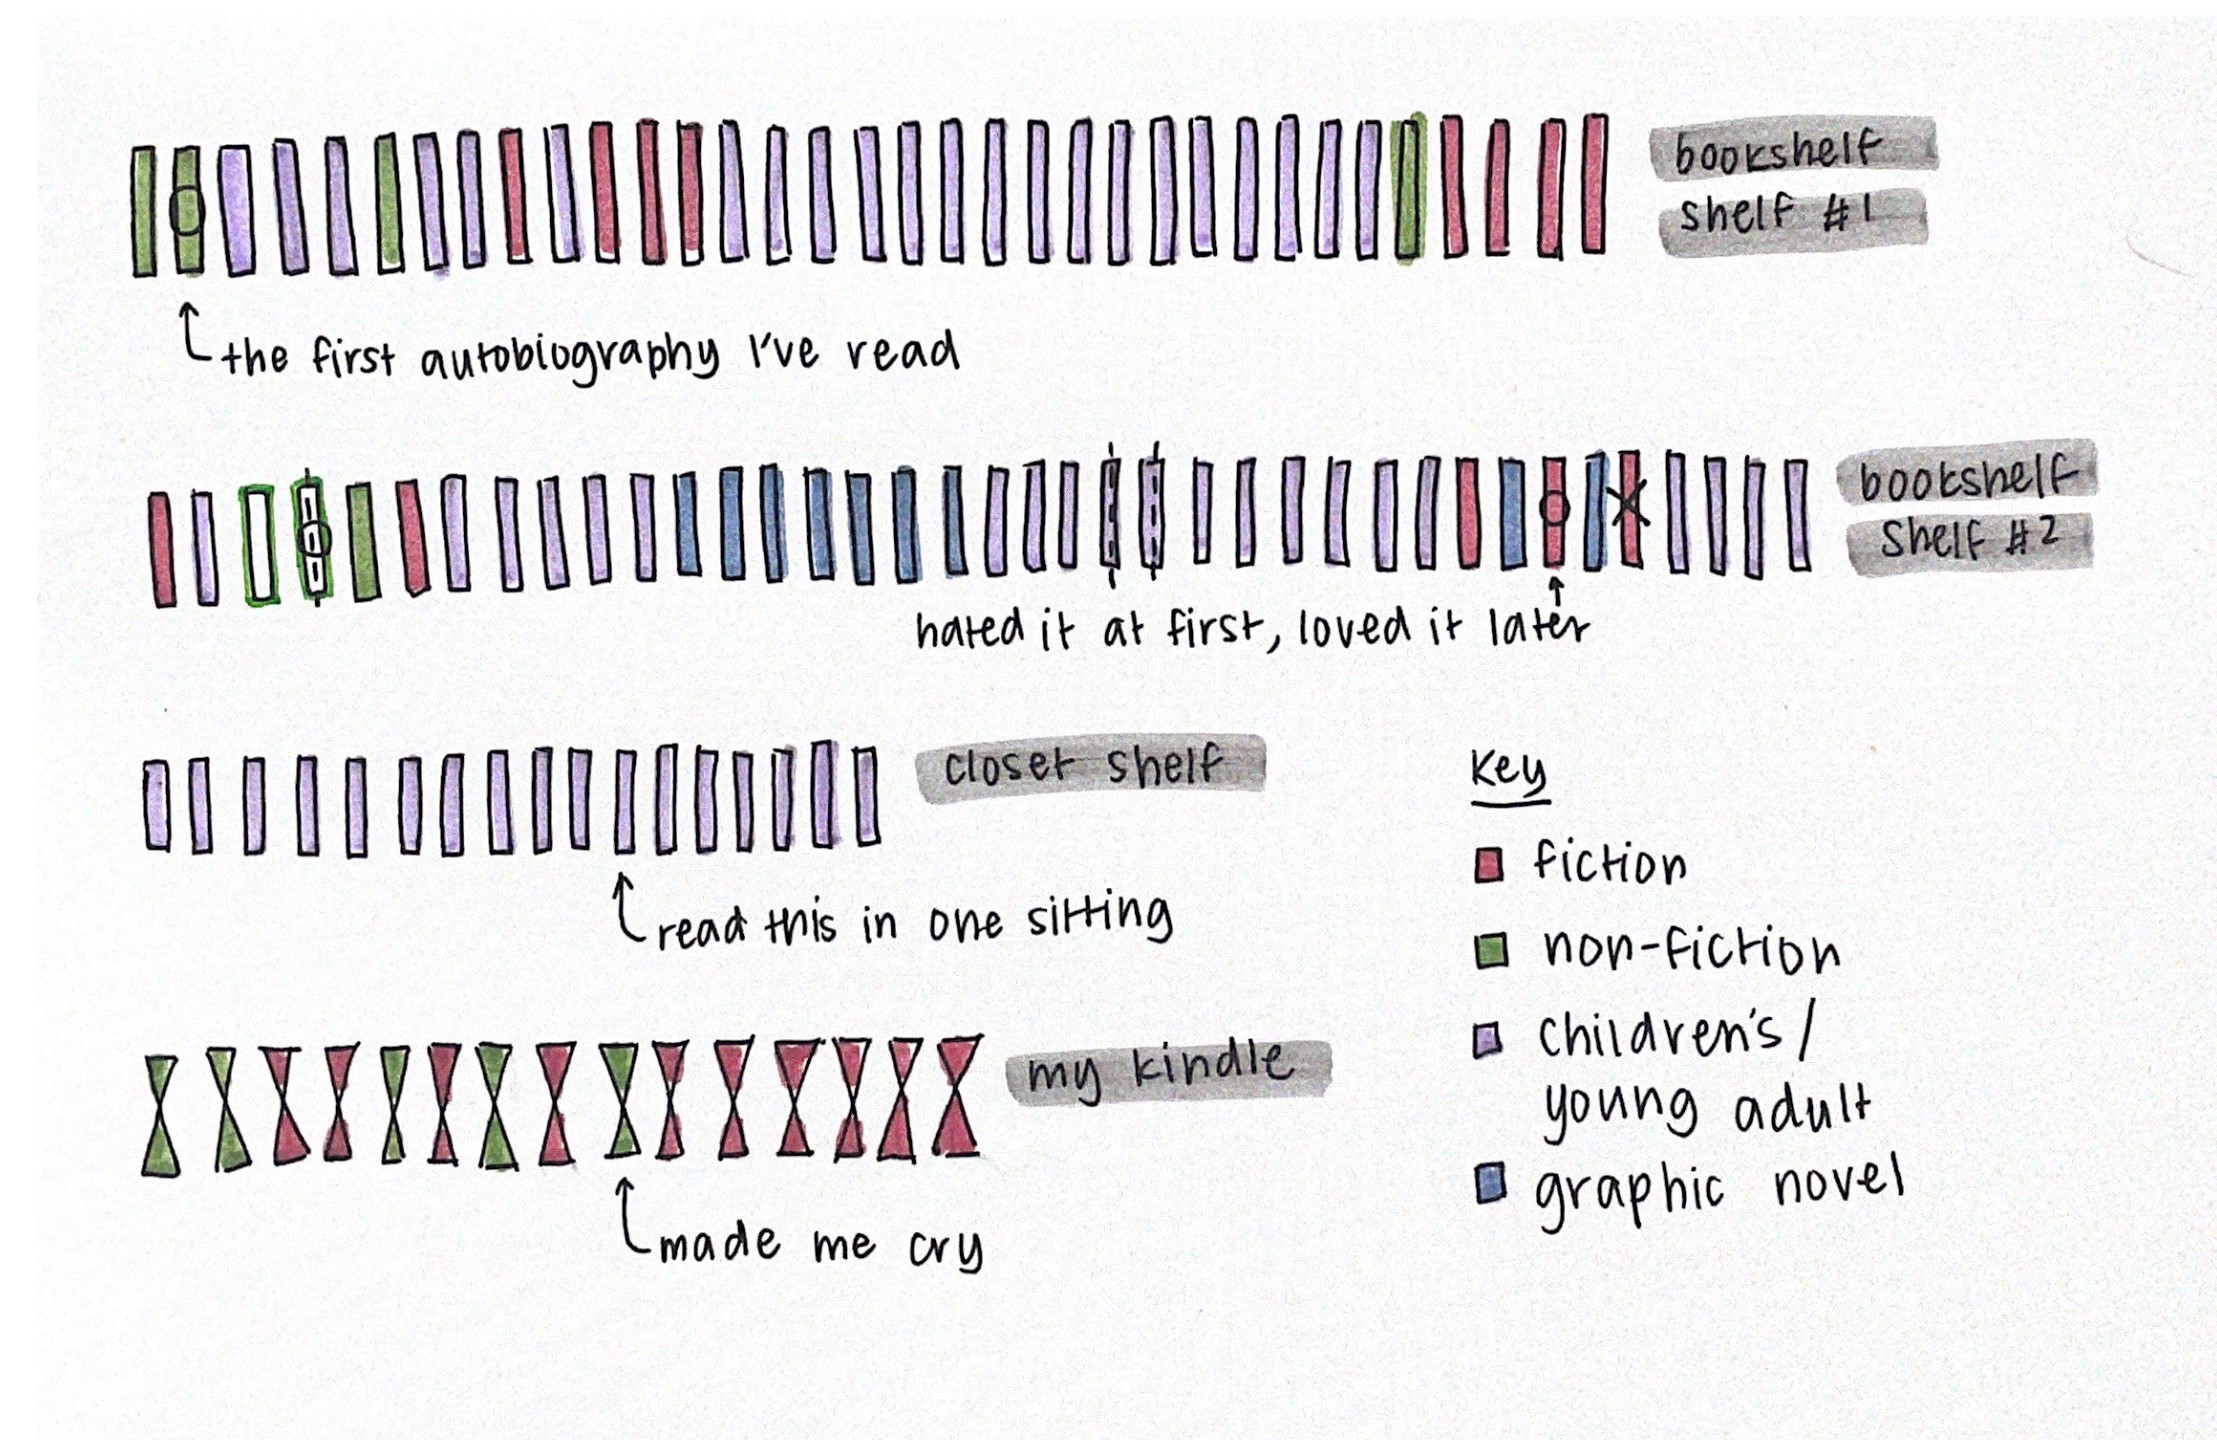 bookshelf
shelf #1
the first autobiography I've read
bookshelf
shelf #2
hated it at first, loved it later
closet shelf
read this in one sitting
my kindle
made me cry
Key
fiction
non-fiction
children's/
young adult
graphic novel